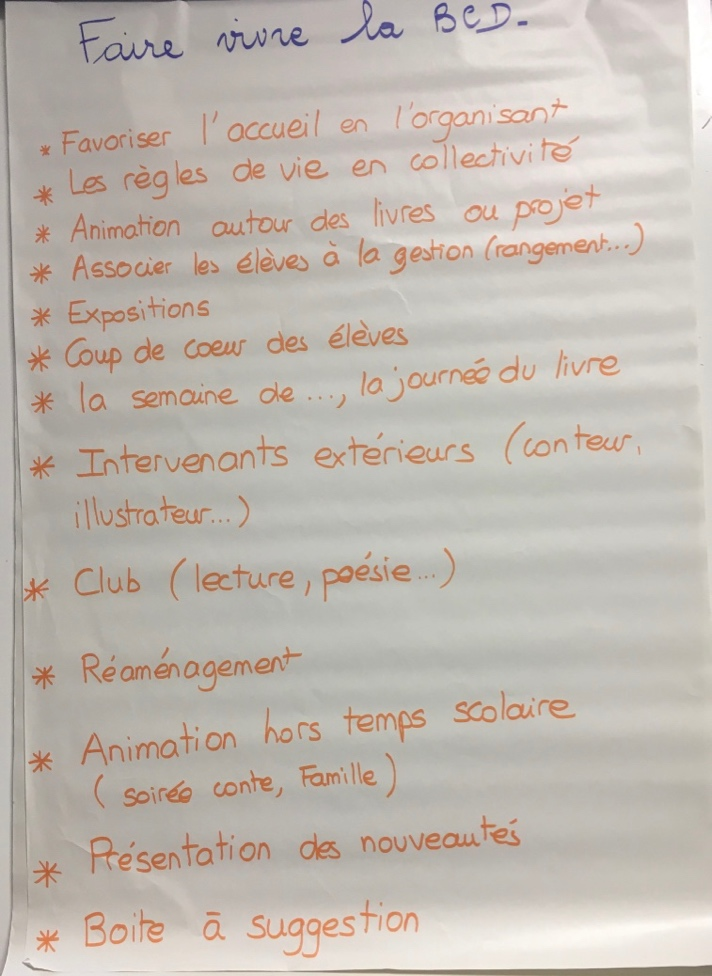 Faire vivre la BCD.
* Favoriser l'accueil en l'organisant
* Les règles de vie en collectivité
* Animation autour des livres ou projet
* Associer les élèves à la gestion (rangement...)
* Expositions
* Coup de coeur des élèves
* la semaine de ..., la journée du livre
* Intervenants extérieurs (conteur,
illustrateur...)
* Club (lecture, poésie...)
* Réaménagement
* Animation hors temps scolaire
( soirée conte, Famille)
* Présentation des nouveautés
* Boite à suggestion